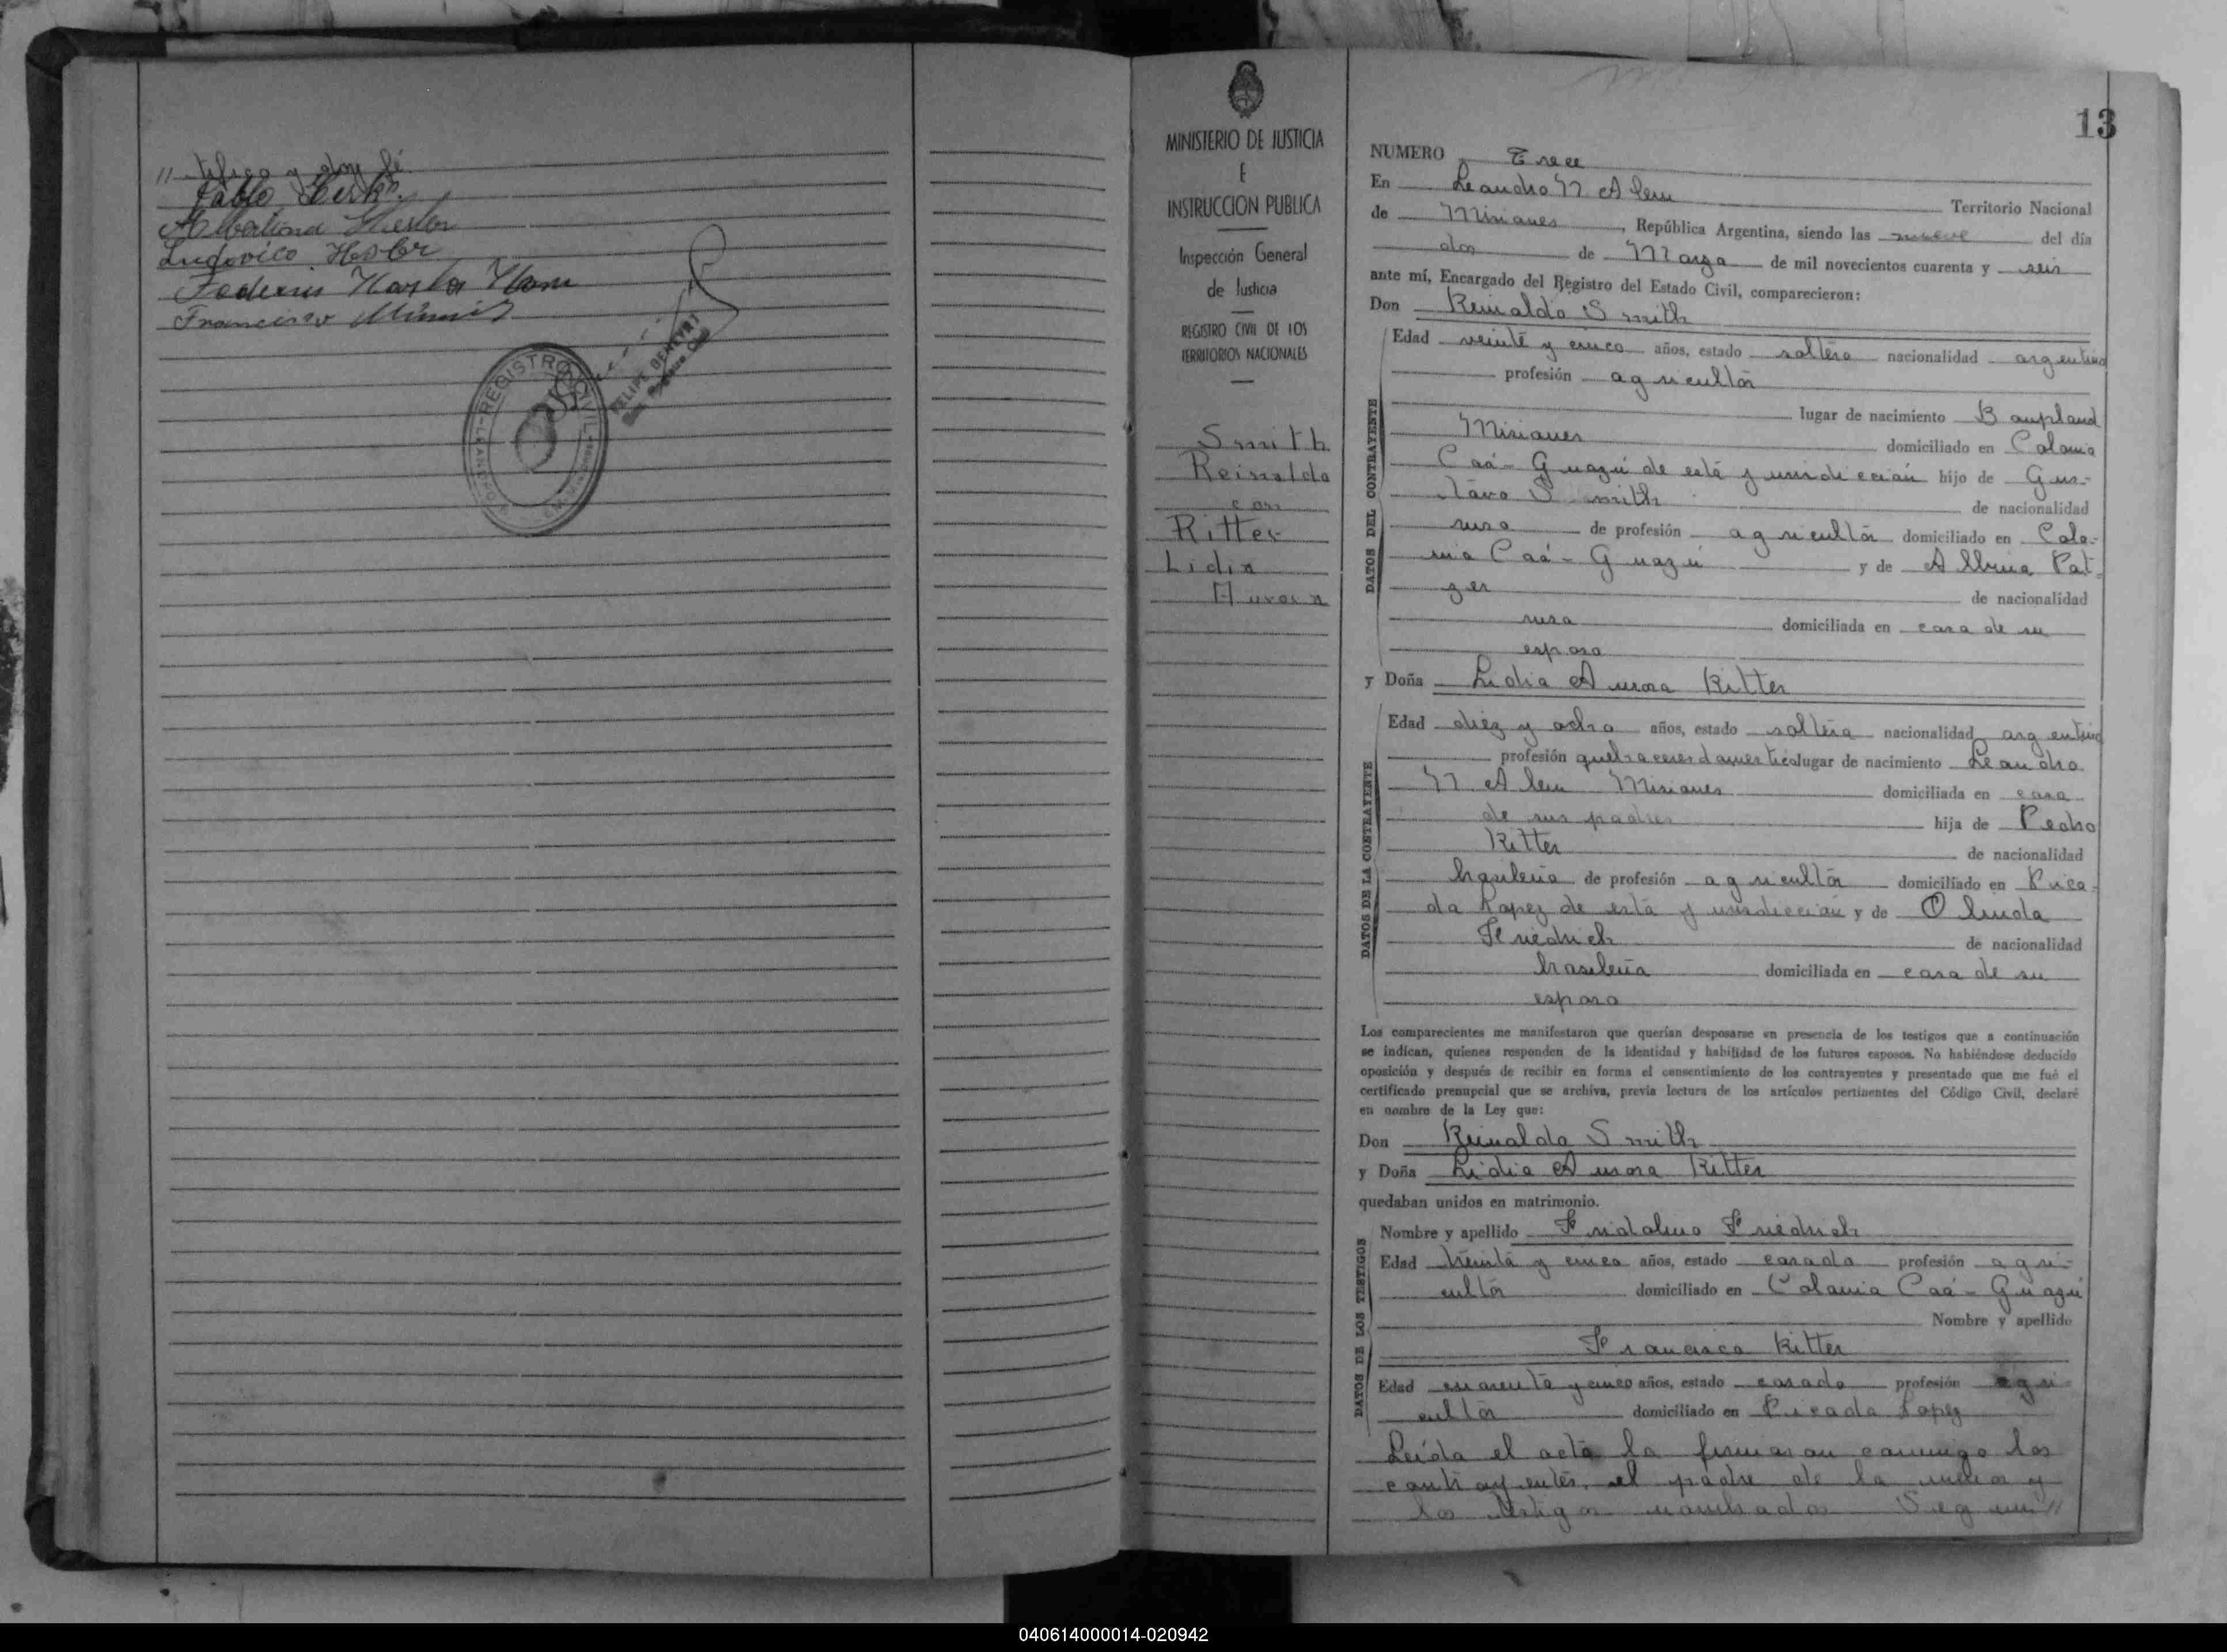 // tifico y doy fé.
Pablo
Albertina Hester
Ludovico Hester
Francisco
REGISTRO CIVIL
FELIPE BENEYRT
MINISTERIO DE JUSTICIA
E
INSTRUCCION PUBLICA
Inspección General
de Justicia
REGISTRO CIVIL DE LOS
TERRITORIOS NACIONALES
Smith
Reinaldo
con
Ritter
Lidia
Aurora
13
NUMERO Trece
En Leandro N Alem Territorio Nacional
de Misiones, República Argentina, siendo las nueve del día
dos de Marzo de mil novecientos cuarenta y seis
ante mí, Encargado del Registro del Estado Civil, comparecieron:
Don Reinaldo Smith
DATOS DEL CONTRAYENTE
Edad veinte y cinco años, estado soltero nacionalidad argentina
profesión agricultor
lugar de nacimiento Baupland
Misiones domiciliado en Colonia
Caá-Guazú de esta jurisdicción hijo de Gus-
tavo Smith de nacionalidad
rusa de profesión agricultor domiciliado en Colo-
nia Caá-Guazú y de Albina Pat-
zer de nacionalidad
rusa domiciliada en casa de su
esposo
y Doña Lidia Aurora Ritter
DATOS DE LA CONTRAYENTE
Edad diez y ocho años, estado soltera nacionalidad argentina
profesión quehaceres domestico lugar de nacimiento Leandro
N Alem Misiones domiciliada en casa
de sus padres hija de Pedro
Ritter de nacionalidad
brasileña de profesión agricultor domiciliado en Pica-
da Lopez de esta jurisdiccion y de Olinda
Friedrich de nacionalidad
brasileña domiciliada en casa de su
esposo
Los comparecientes me manifestaron que querían desposarse en presencia de los testigos que a continuación
se indican, quienes responden de la identidad y habilidad de los futuros esposos. No habiéndose deducido
oposición y después de recibir en forma el consentimiento de los contrayentes y presentado que me fué el
certificado prenupcial que se archiva, previa lectura de los artículos pertinentes del Código Civil, declaré
en nombre de la Ley que:
Don Reinaldo Smith
y Doña Lidia Aurora Ritter
quedaban unidos en matrimonio.
DATOS DE LOS TESTIGOS
Nombre y apellido Fridolino Friedrich
Edad treinta y cinco años, estado casado profesión agri-
cultor domiciliado en Colonia Caá-Guazú
Nombre y apellido
Francisco Ritter
Edad cuarenta y cinco años, estado casado profesión agri-
cultor domiciliado en Picada Lopez
Leída el acta la firmaron conmigo los
contrayentes, el padre de la menor y
los testigos nombrados
040614000014-020942